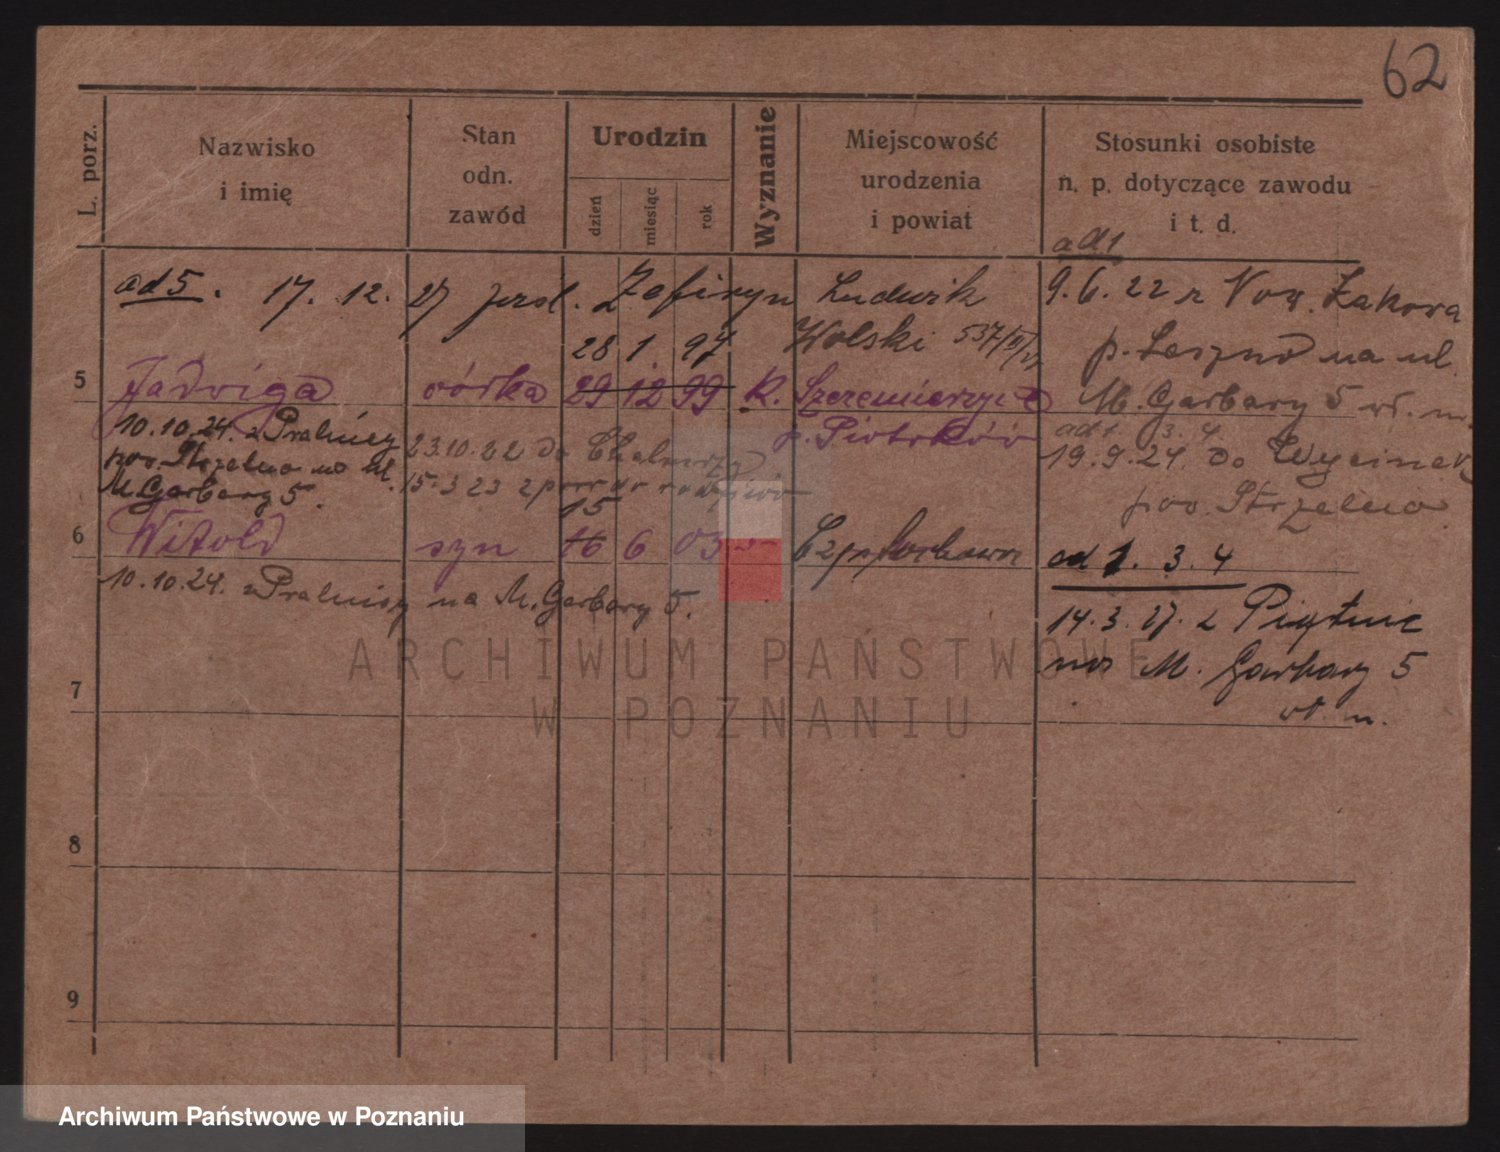 62
L. porz.
Nazwisko
i imię
Stan
odn.
zawód
Urodzin
dzień
miesiąc
rok
Wyznanie
Miejscowość
urodzenia
i powiat
Stosunki osobiste
n. p. dotyczące zawodu
i t. d.
ad 5. 17. 12. 27 Zefiryn Ludwik
Wolski 537/
28 1. 97
5 Jadwiga córka 29 12 99 K.
p. Piotrków
10.10.24. z
pow. Strzelno na ul.
M. Garbary 5.
23.10.22 do
15.3 23 z
15
6 Witold syn 16 6 03
10.10.24. z na M. Garbary 5.
ad 1
9.6.22 z Now.
p. Leszno na ul.
M. Garbary 5 wł. m.
ad 1. 3. 4
19.9.24. do Wycinek
pow. Strzelno
ad 1. 3. 4
14.3.27. z
na M. Garbary 5
wł. m.
7
8
9
ARCHIWUM PAŃSTWOWE
W POZNANIU
Archiwum Państwowe w Poznaniu